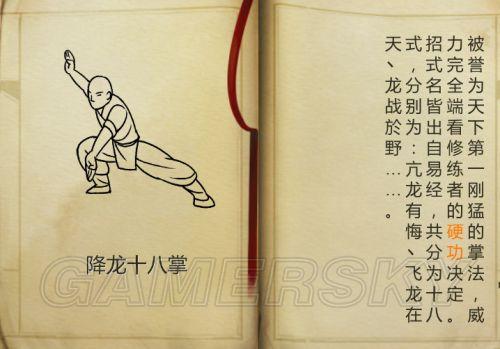 降龙十八掌
被誉为天下第一刚猛的掌法，威
力完全端看修练者的硬功决定。
招式名皆出自易经，共分为十八
式，分别为：亢龙有悔、飞龙在
天、龙战於野……。
GAMERSKY